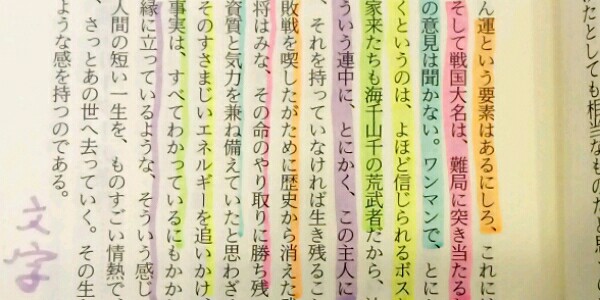 たとしても相当なものだと思
ん運という要素はあるにしろ、これに
そして戦国大名は、難局に突き当たる
の意見は聞かない。ワンマンで、とに
くというのは、よほど信じられるボス
家来たちも海千山千の荒武者だから、
ういう連中に、とにかく、この主人に
、それを持っていなければ生き残るこ
敗戦を喫したがために歴史から消えた
将はみな、その命のやり取りに勝ち残
資質と気力を兼ね備えていたと思わざ
そのすさまじいエネルギーを追いかけ
事実は、すべてわかっているにもかか
縁に立っているような、そういう感じ
人間の短い一生を、ものすごい情熱で
、さっとあの世へ去っていく。その生
ような感を持つのである。
文字